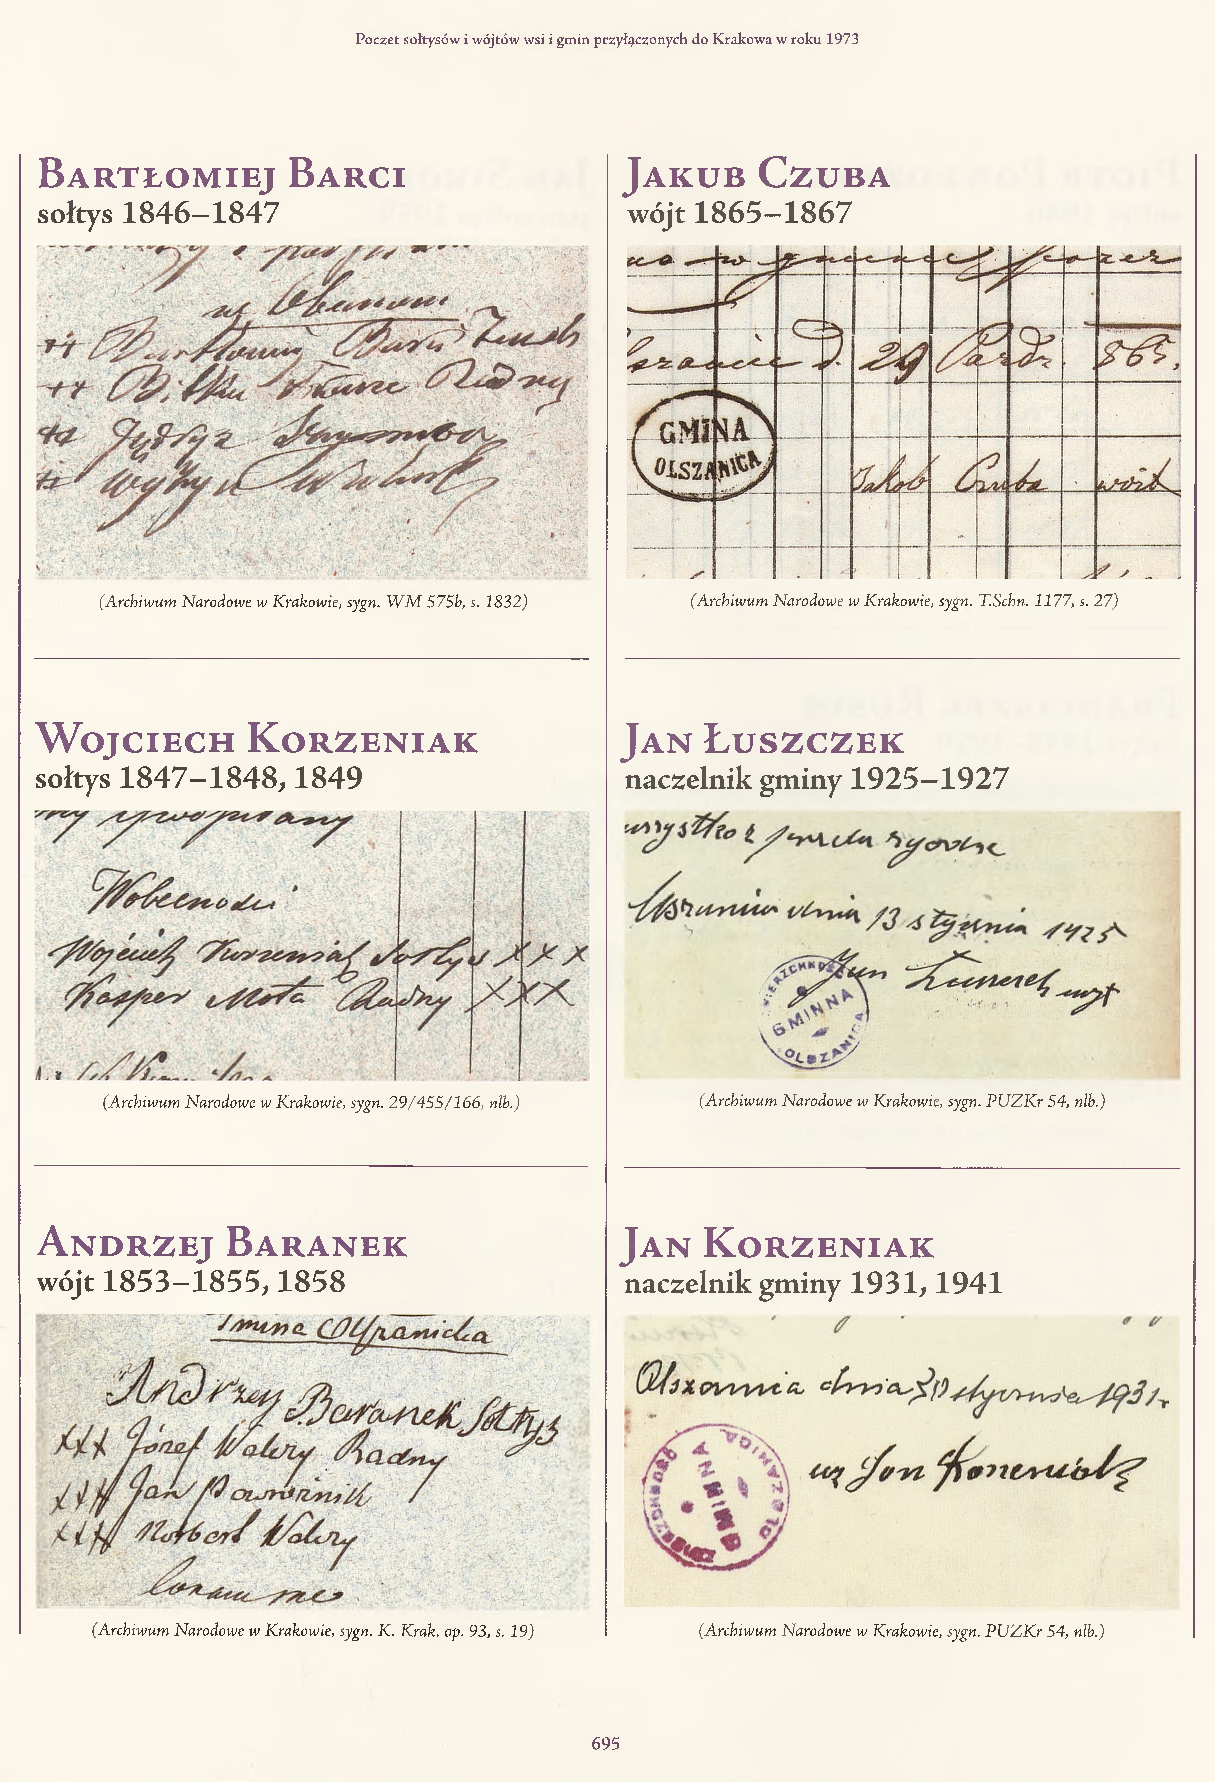 Poczet sołtysów i wójtów wsi i gmin przyłączonych do Krakowa w roku 1973
Bartłomiej Barci
sołtys 1846–1847
(Archiwum Narodowe w Krakowie, sygn. WM 575b, s. 1832)
Wojciech Korzeniak
sołtys 1847–1848, 1849
Wobecności
Wojciech Korzeniak Sołtys XXX
Kasper Mota Radny XXX
(Archiwum Narodowe w Krakowie, sygn. 29/455/166, nlb.)
Andrzej Baranek
wójt 1853–1855, 1858
Gmina Olszanicka
Andrzey Baranek Sołtys
XXX Józef Walery Radny
XXX Jan Powroźnik
XXX Norbert Walery
Coram me
(Archiwum Narodowe w Krakowie, sygn. K. Krak. op. 93, s. 19)
Jakub Czuba
wójt 1865–1867
no w gminie
d. 29 Paźdz. 865.
GMINA
OLSZANICA
Jakob Czuba wóit
(Archiwum Narodowe w Krakowie, sygn. T.Schn. 1177, s. 27)
Jan Łuszczek
naczelnik gminy 1925–1927
wszystko z
dnia 13 stycznia 1925
Jan
ZWIERZCHNOŚĆ
GMINNA
OLSZANICA
(Archiwum Narodowe w Krakowie, sygn. PUZKr 54, nlb.)
Jan Korzeniak
naczelnik gminy 1931, 1941
Olszanica dnia 30 stycznia 1931 r.
wz Jan Korzeniak
ZWIERZCHNOŚĆ
GMINNA
OLSZANICA
(Archiwum Narodowe w Krakowie, sygn. PUZKr 54, nlb.)
695